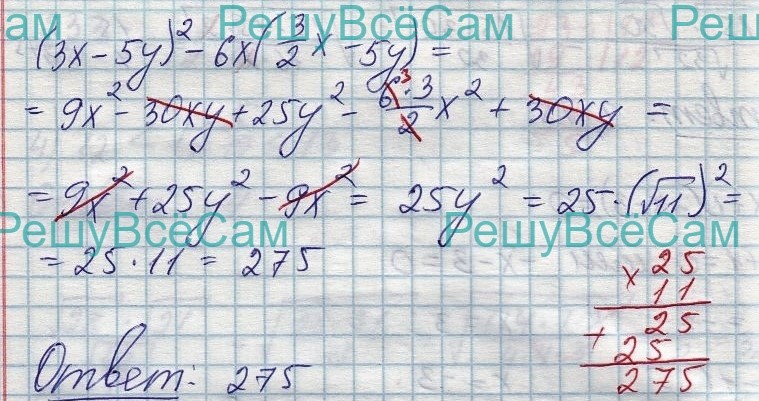 сам РешуВсёСам Решу
(3x-5y)²-6x(3/2x-5y)=
=9x²-30xy+25y²-6³·3/2x²+30xy=
=9x²+25y²-9x²=25y²=25·(√11)²=
РешуВсёСам РешуВсёСам
=25·11=275
x 25
11
+ 25
25
275
Ответ: 275